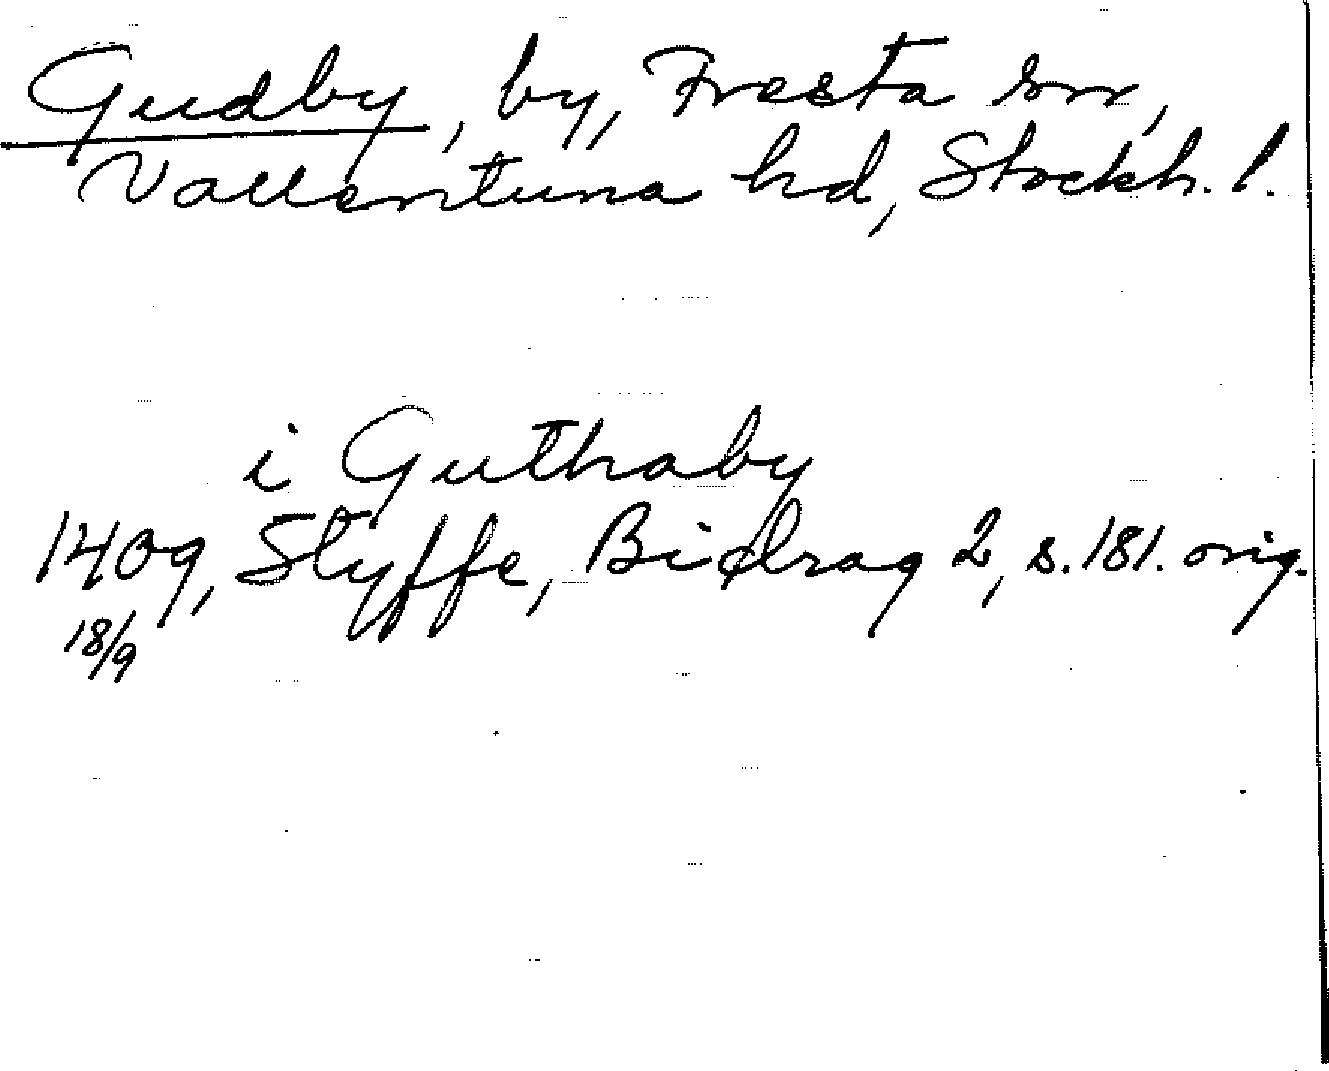 Gudby, by, Fresta snr,
Vallentuna hd, Stockh. l.
i Guthaby
1409, Styffe, Bidrag 2, s. 181. orig.
18/9